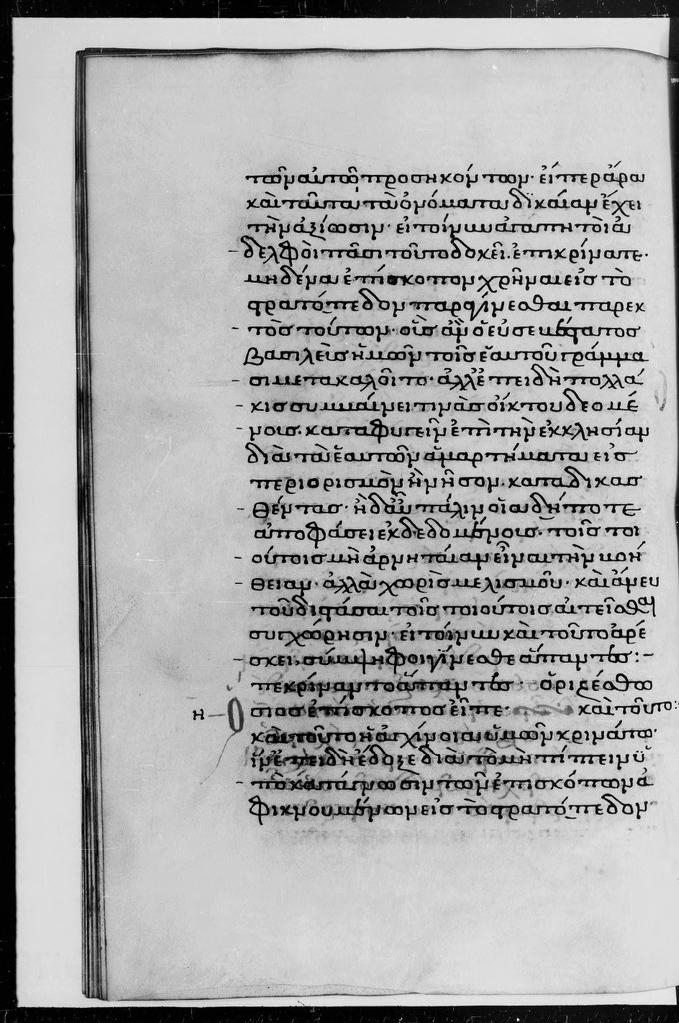 τῶν αὐτῶ προσηκόντων· εἴπερ ἄρα
καὶ ταῦτα τὰ ὀνόματα δικαίαν ἔχει
τὴν ἀξίωσιν· εἰ τοίνυν ἀγαπητοὶ ἀ
δελφοὶ πᾶσι τοῦτο δοκεῖ. ἐπικρίνατε
μηδένα ἐπίσκοπον χρῆναι εἰς τὸ
στρατόπεδον παραγίνεσθαι παρεκ
τὸς τούτων· οὓς ἂν ὁ εὐσεβέστατος
βασιλεὺς ἡμῶν τοῖς ἑαυτοῦ γράμμα
σι μετακαλοῖτο· ἀλλ' ἐπειδὴ πολλά
κις συμβαίνει τινὰς οἴκτου δεομέ
νους. καταφυγεῖν ἐπὶ τὴν ἐκκλησίαν
διὰ τὰ ἑαυτῶν ἁμαρτήματα εἰς
περιορισμὸν ἢ νῆσον. καταδικασ
θέντας· ἢ δ' αὖ πάλιν οἱαδήποτε
ἀποφάσει ἐκδεδομένους. τοῖς τοι
ούτοις μὴ ἀρνητέαν εἶναι τὴν βοή
θειαν. ἀλλὰ χωρὶς μελισμοῦ· καὶ ἄνευ
τοῦ διστάσαι τοῖς τοιούτοις αἰτεῖσθαι
συγχώρησιν· εἰ τοίνυν καὶ τοῦτο ἀρέ
σκει. σύμψηφοι γίνεσθε ἅπαντες:–
πεκρίναντο ἅπαντες· ὁριζέσθω
Η ὅσιος ἐπίσκοπος εἶπε· καὶ τοῦτο:
καὶ τοῦτο ἡ ἀγχίνοια ὑμῶν κρινάτω·
ἵν' ἐπειδὴ ἔδοξε διὰ τὸ μὴ πίπτειν ὑ
πὸ κατάγνωσιν τῶν ἐπισκόπων ἀ
φικνουμένων εἰς τὸ στρατόπεδον·